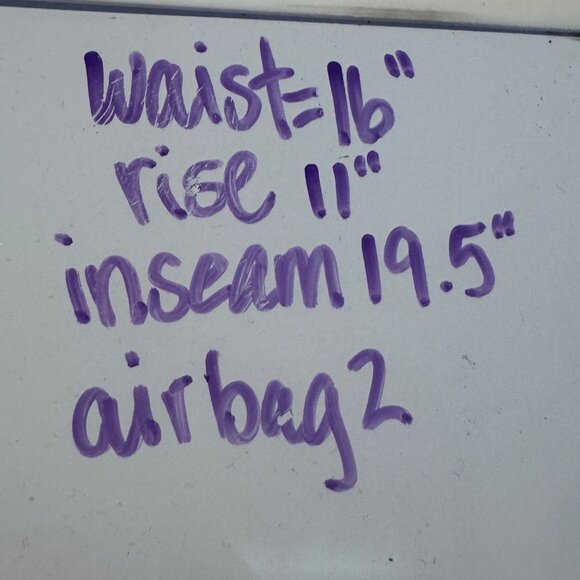 waist=16"
rise 11"
inseam 19.5"
airbag2